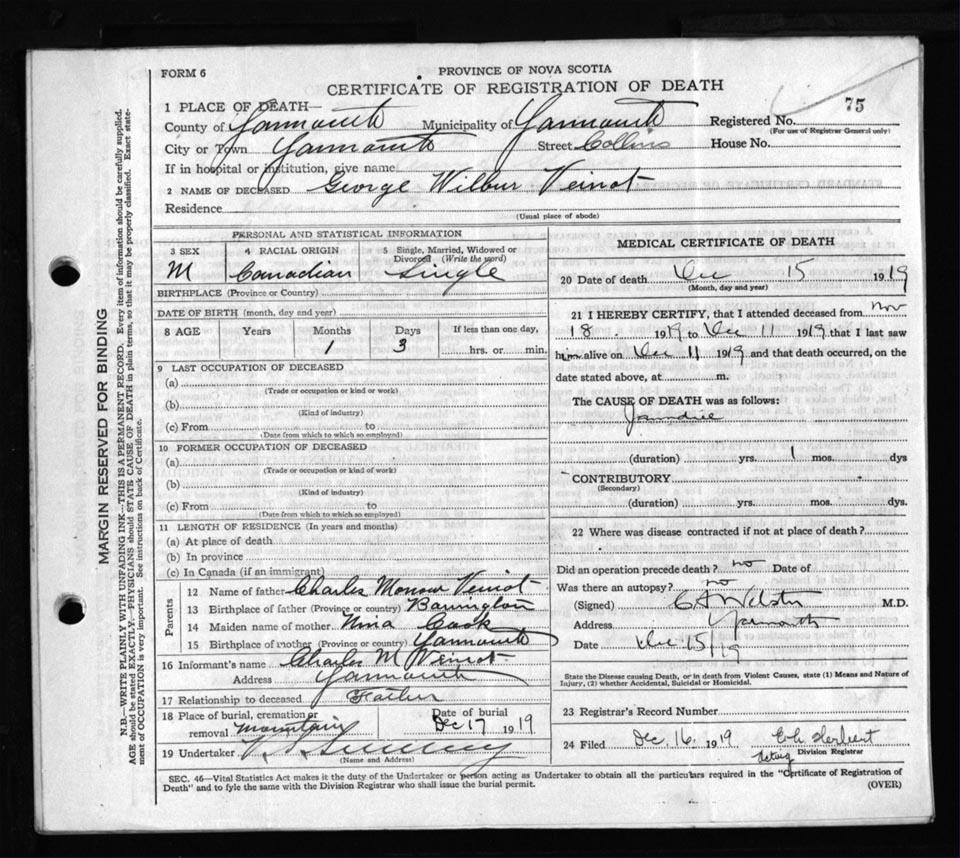 FORM 6
PROVINCE OF NOVA SCOTIA
CERTIFICATE OF REGISTRATION OF DEATH
75
1 PLACE OF DEATH—
County of Yarmouth Municipality of Yarmouth Registered No.
(For use of Registrar General only)
City or Town Yarmouth Street Collins House No.
If in hospital or institution, give name
2 NAME OF DECEASED George Wilbur Veinot
Residence
(Usual place of abode)
PERSONAL AND STATISTICAL INFORMATION
3 SEX 4 RACIAL ORIGIN 5 Single, Married, Widowed or Divorced (Write the word)
M Canadian Single
BIRTHPLACE (Province or Country)
DATE OF BIRTH (month, day and year)
8 AGE Years Months Days If less than one day,
1 3 hrs. or min.
9 LAST OCCUPATION OF DECEASED
(a)
(Trade or occupation or kind or work)
(b)
(Kind of industry)
(c) From to
(Date from which to which so employed)
10 FORMER OCCUPATION OF DECEASED
(a)
(Trade or occupation or kind of work)
(b)
(Kind of industry)
(c) From to
(Date from which to which so employed)
11 LENGTH OF RESIDENCE (In years and months)
(a) At place of death
(b) In province
(c) In Canada (if an immigrant)
Parents
12 Name of father Charles Veinot
13 Birthplace of father (Province or country) Barrington
14 Maiden name of mother Cook
15 Birthplace of mother (Province or country) Yarmouth
16 Informant's name Charles M Veinot
Address Yarmouth
17 Relationship to deceased Father
18 Place of burial, cremation or removal Mountain Date of burial Dec 17 1919
19 Undertaker
(Name and Address)
MEDICAL CERTIFICATE OF DEATH
20 Date of death Dec 15 1919
(Month, day and year)
21 I HEREBY CERTIFY, that I attended deceased from Nov
18 1919 to Dec 11 1919 that I last saw
him alive on Dec 11 1919 and that death occurred, on the
date stated above, at m.
The CAUSE OF DEATH was as follows:
Jaundice
(duration) yrs. 1 mos. dys
CONTRIBUTORY
(Secondary)
(duration) yrs. mos. dys.
22 Where was disease contracted if not at place of death?
Did an operation precede death? no Date of
Was there an autopsy? no
(Signed) Webster M.D.
Address Yarmouth
Date Dec 15/19
State the Disease causing Death, or in death from Violent Causes, state (1) Means and Nature of
Injury, (2) whether Accidental, Suicidal or Homicidal.
23 Registrar's Record Number
24 Filed Dec. 16 1919 Herbert
Acting Division Registrar
SEC. 46—Vital Statistics Act makes it the duty of the Undertaker or person acting as Undertaker to obtain all the particulars required in the "Certificate of Registration of
Death" and to fyle the same with the Division Registrar who shall issue the burial permit. (OVER)
MARGIN RESERVED FOR BINDING
N.B.—WRITE PLAINLY WITH UNFADING INK—THIS IS A PERMANENT RECORD. Every item of information should be carefully supplied.
AGE should be stated EXACTLY.—PHYSICIANS should STATE CAUSE OF DEATH in plain terms, so that it may be properly classified. Exact statement of OCCUPATION is very important. See instructions on back of Certificate.